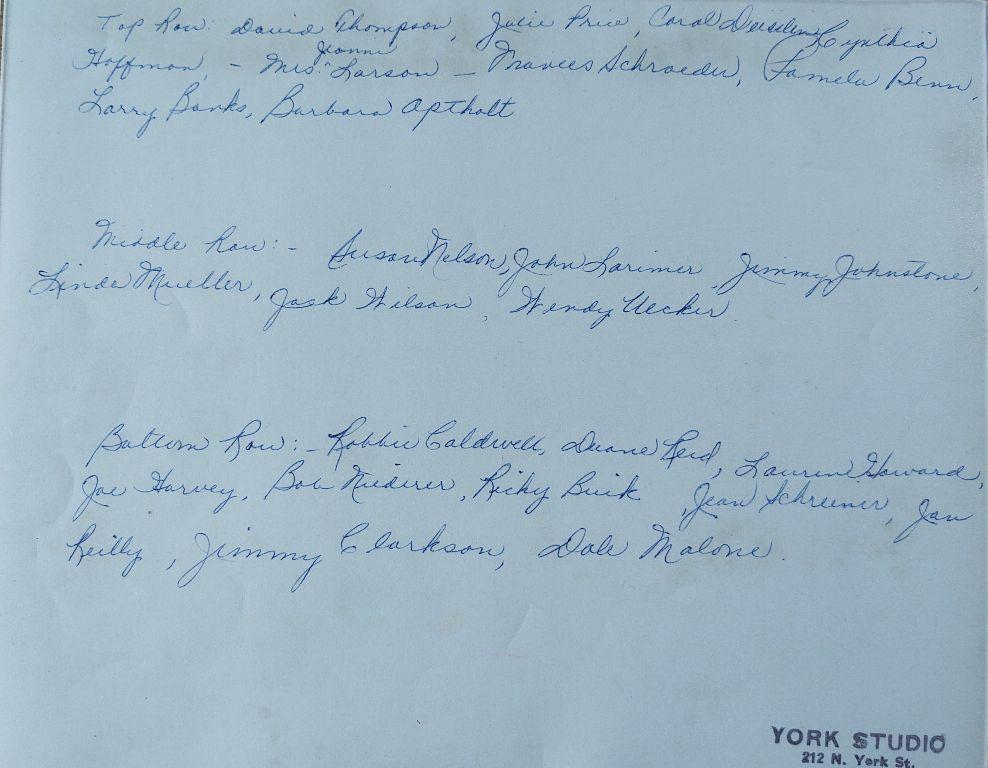 Top Row: David Thompson, Julie Price, Carol Cynthia
Jeanne
Hoffman, - Mrs. Larson - Frances Schroeder, Pamela Benn,
Larry Banks, Barbara Aptholt
Middle Row: - Susan Nelson, John Larimer, Jimmy Johnstone,
Linda Mueller, Jack Wilson, Wendy Uecker
Bottom Row: - Robbie Caldwell, Duane Reid, Lauren Howard,
Joe Harvey, Bob Niederer, Ricky Buik, Jean Schreiner, Jan
Reilly, Jimmy Clarkson, Dale Malone.
YORK STUDIO
212 N. York St.